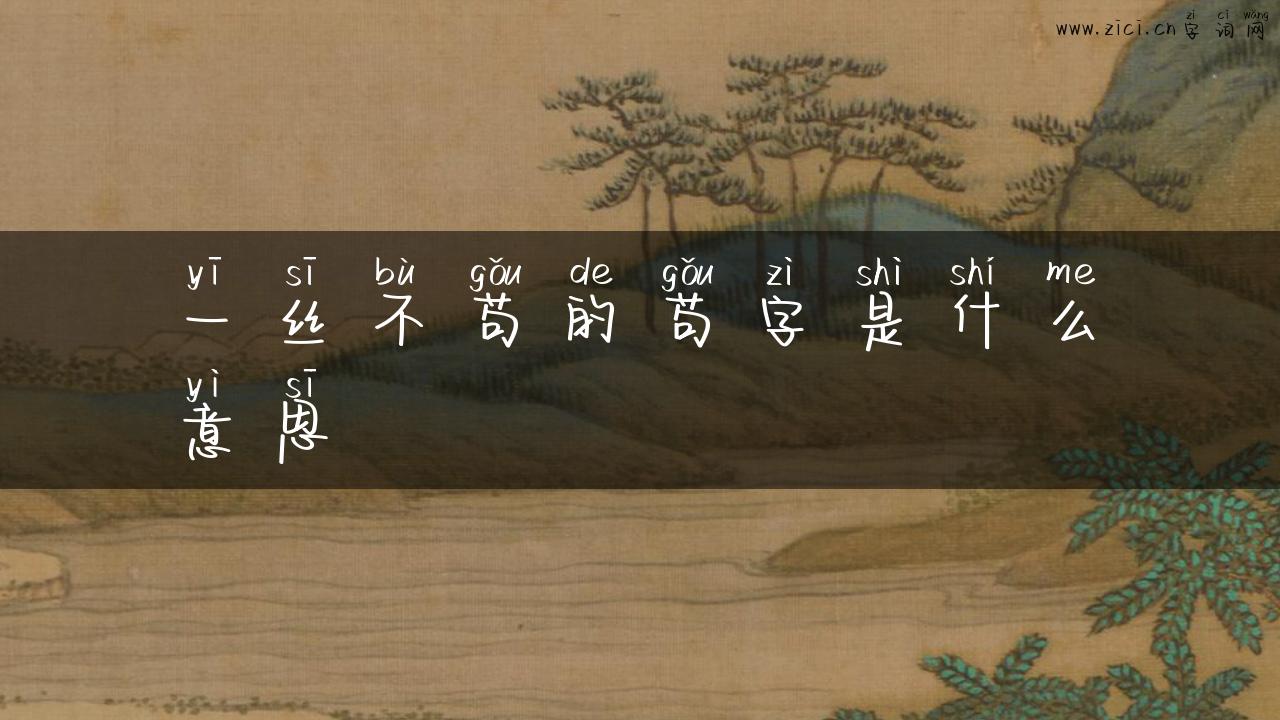 zì cí wǎng
www.zici.cn 字词网
yī sī bù gǒu de gǒu zì shì shí me
一丝不苟的苟字是什么
yì sī
意思